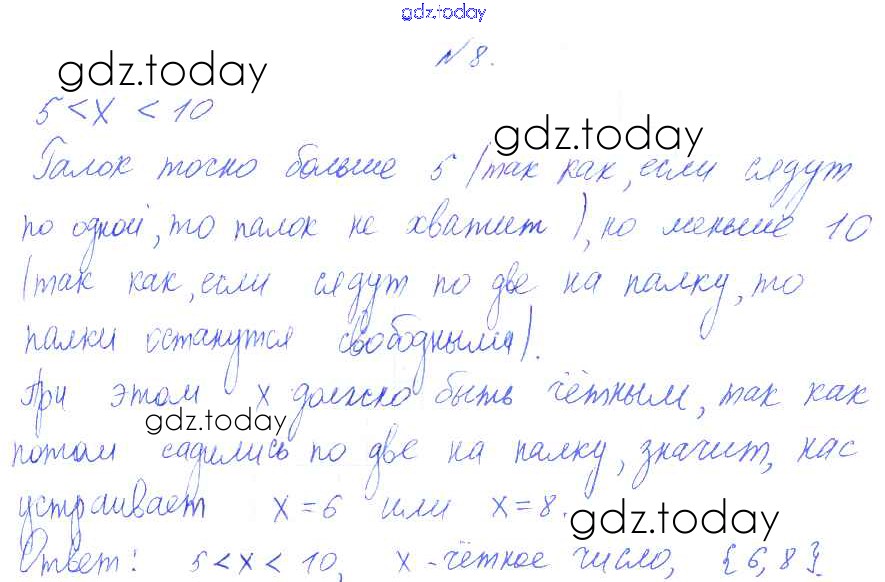 gdz.today
№8.
gdz.today
5 < x < 10
gdz.today
Галок точно больше 5 (так как, если сядут
по одной, то палок не хватит), но меньше 10
(так как, если сядут по две на палку, то
палки останутся свободными).
При этом x должно быть чётным, так как
gdz.today
потом садились по две на палку, значит, нас
устраивает x = 6 или x = 8.
gdz.today
Ответ: 5 < x < 10, x - чётное число, {6,8}.